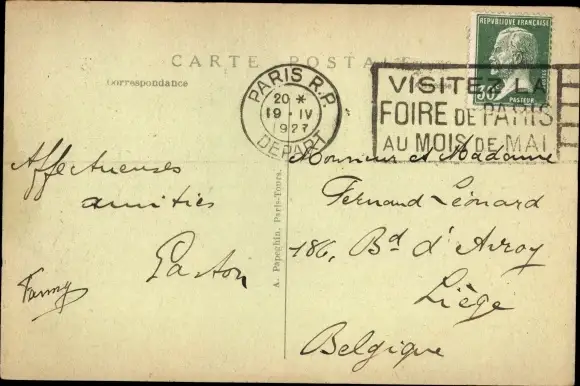 CARTE POSTALE
Correspondance
RÉPUBLIQUE FRANÇAISE
30c
PASTEUR
PARIS R.P.
20 *
19 - IV
1927
DEPART
VISITEZ LA
FOIRE DE PARIS
AU MOIS DE MAI
Affectueuses
amitiés
Gaston
Fanny
A. Papeghin, Paris-Tours.
Monsieur et Madame
Fernand-Léonard
186, Bd d'Avroy
Liège
Belgique